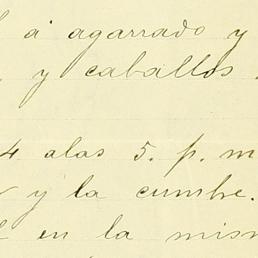 á agarrado y
y caballos
4 alas 5. p. m
y la cumbre.
en la mism